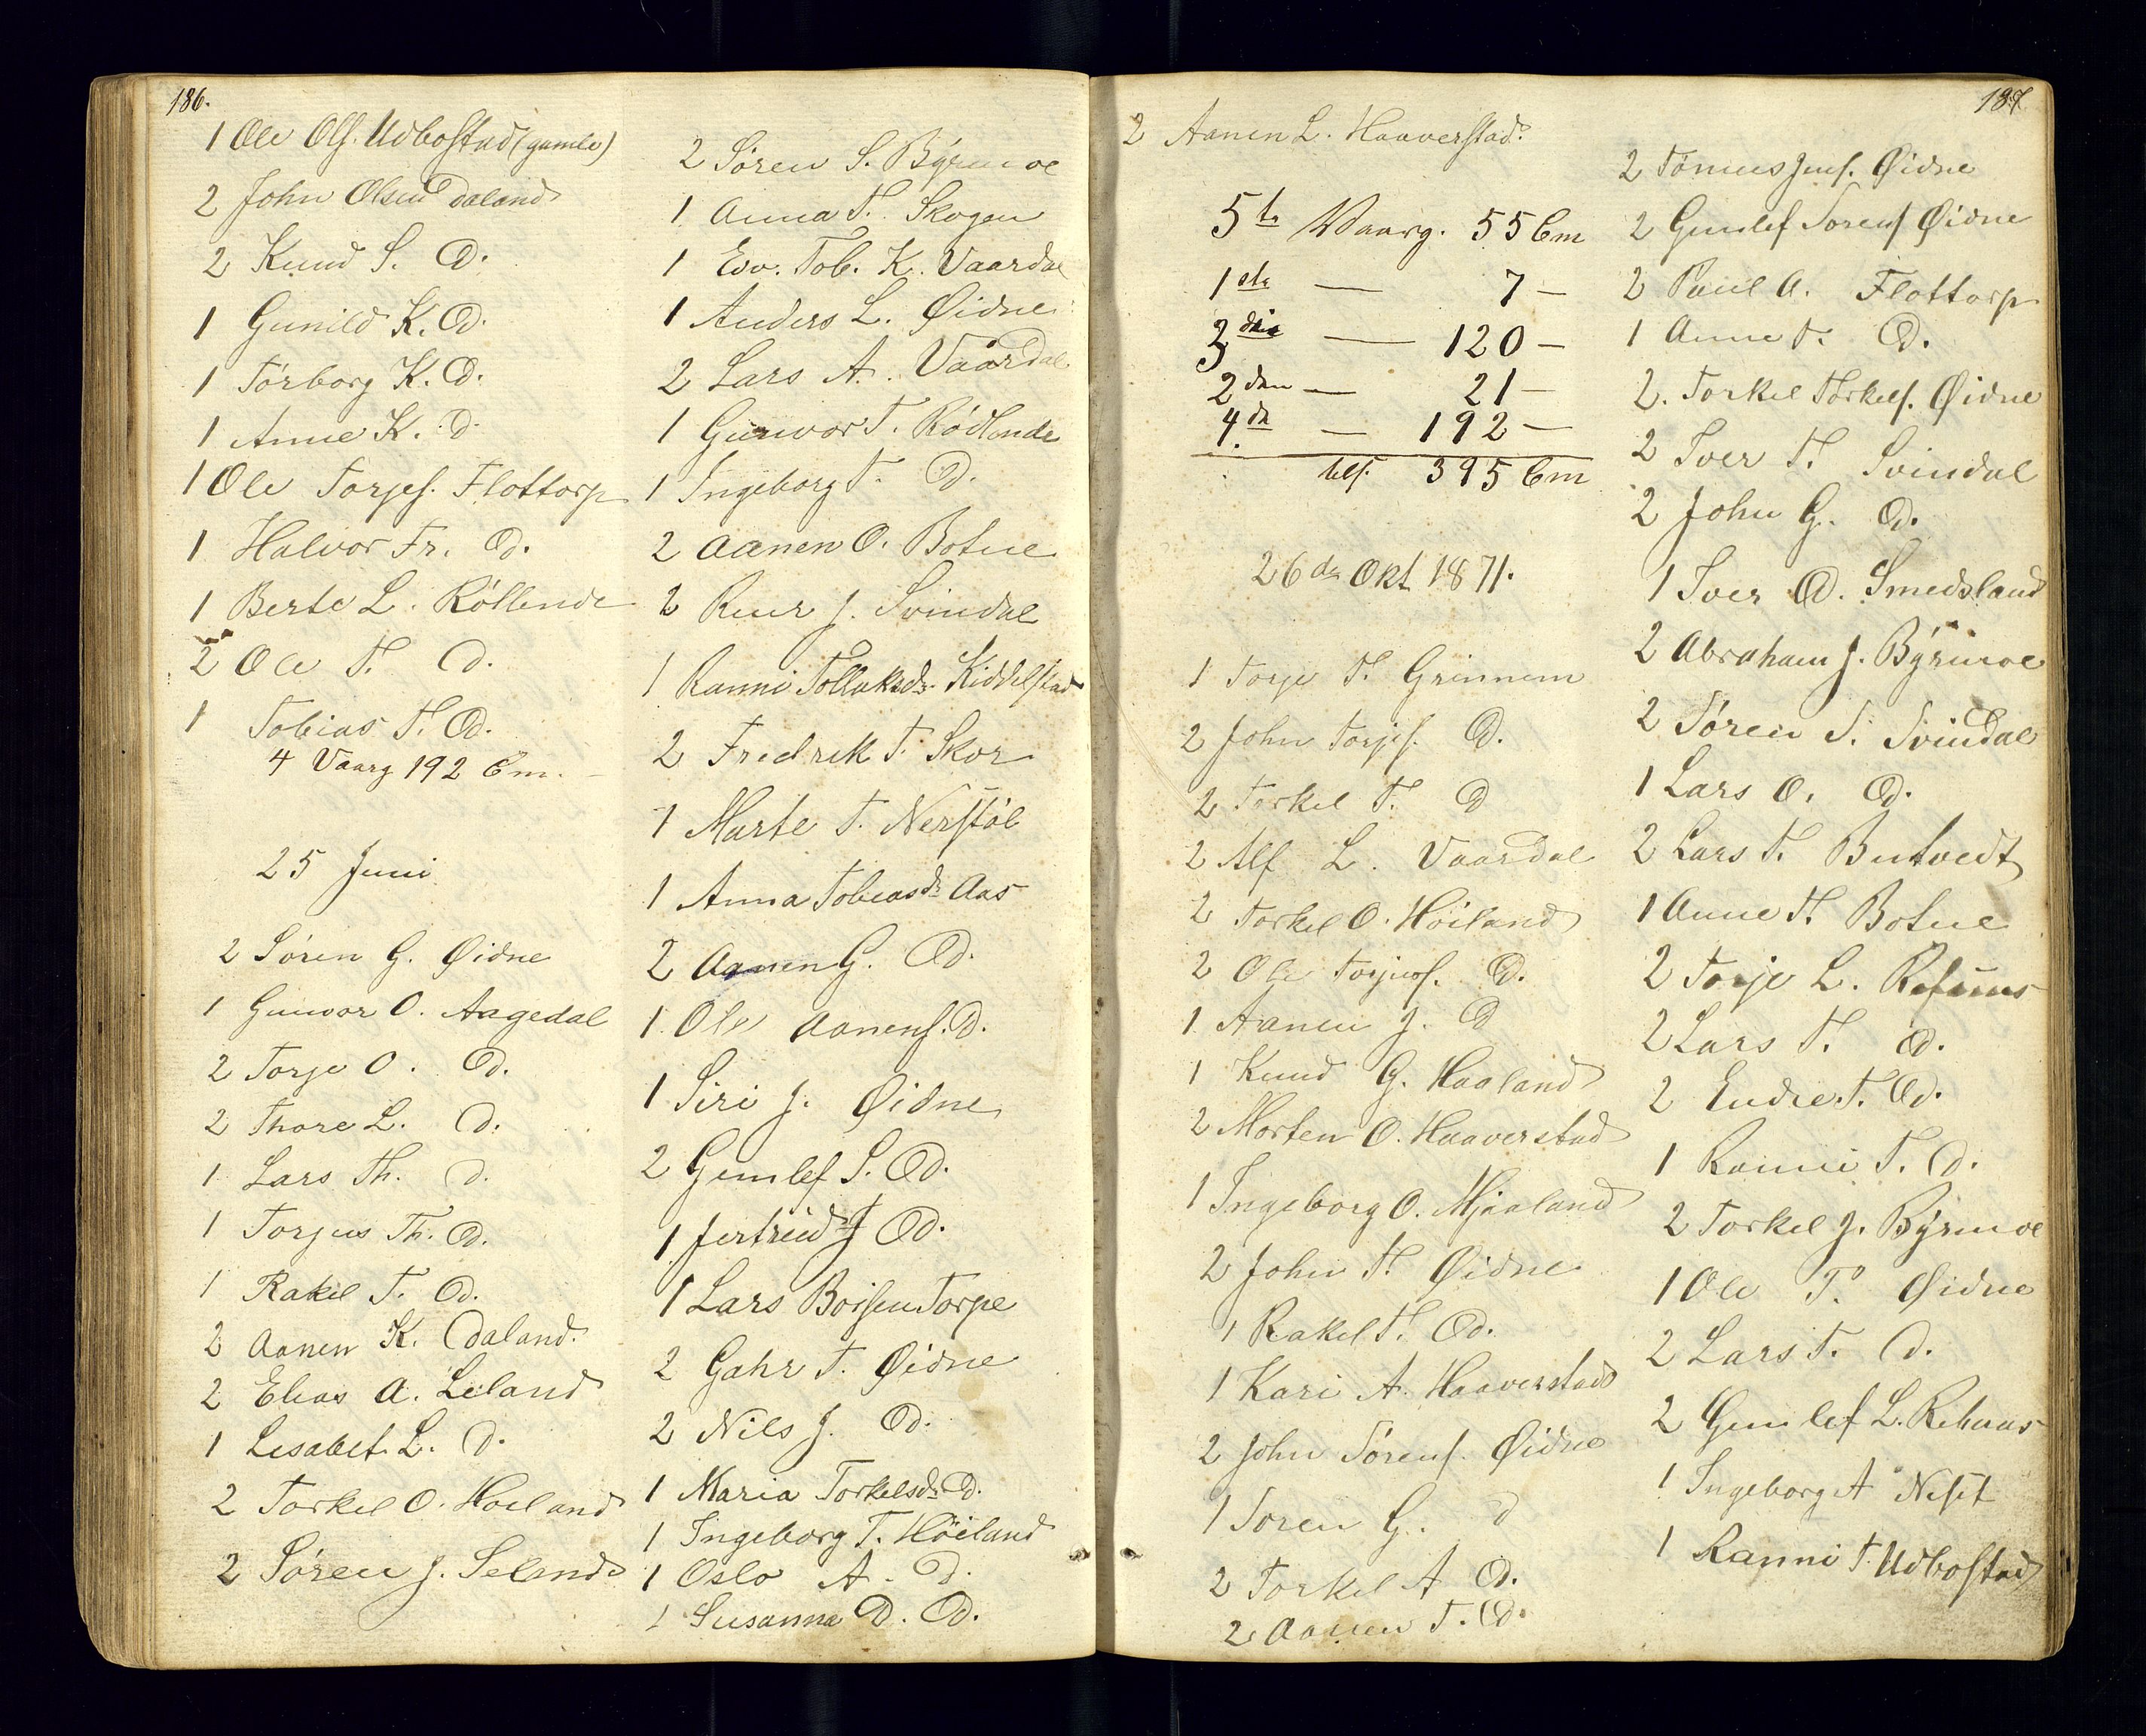 186.
1 Ole Ols. Udbostad (gamle)
2 John Olsen Daland
2 Knud S. D.
1 Gunild K. D.
1 Tørborg K. D.
1 Anne K. D.
1 Ole Torjes. Flottorp
1 Halvor Fr. D.
1 Berte L. Røllende
2 Ole T. D.
1 Tobias T. D.
4 Vaarg 192 Cm.
25 Juni
2 Søren G. Øidne
1 Gunvor O. Aagedal
2 Torje O. D.
2 Thore L. D.
1 Lars Th. D.
1 Torjus Th. D.
1 Rakel T. D.
2 Aanen K. Daland
2 Elias A. Leland
1 Lisabet L. D.
2 Torkel O. Hoiland
2 Søren J. Seland
2 Søren S. Býrmoe
1 Anna T. Skogen
1 Tob. K. Vaardal
1 Anders L. Øidne
2 Lars A. Vaardal
1 Gunvor T. Rödlende
1 Ingeborg T. D.
2 Aanen O. Botne
2 J. Svindal
1 Ranni Tollaksdr. Kiddelstad
2 Fredrik T. Skor
1 Marte T. Nerstöl
1 Anna Tobiasdr Aas
2 Aanen G. D.
1 Ole Aanens. D.
1 Siri J. Øidne
2 Gunlef S. D.
1 Jertrud J D.
1 Lars Boisen Torpe
2 Gahr T. Øidne
2 Nils J. D.
1 Maria Torkelsdr D.
1 Ingeborg T. Höiland
1 Oslo A. D.
1 Susanna D. D.
187
2 Aanen L. Haaverstad
5te Vaarg. 55 Cm
1ste — 7 —
3die — 120 —
2den — 21 —
4de — 192 —
tils. 395 Cm
26de Okt 1871.
1 Torje T. Grinnem
2 John Torjes. D.
2 Torkel T. D
2 Alf L. Vaardal
2 Torkel O. Höiland
2 Ole Torjus. D.
1 Aanen J. D
1 Knud G. Haaland
2 Morten O. Haaverstad
1 Ingeborg O. Mjaaland
2 John T. Øidne
1 Rakel T. D.
1 Kari A. Haaverstad
2 John Sörens. Øidne
1 Soren G. D
2 Torkel A D.
2 Aanen T. D.
2 Tönnes Jens. Øidne
2 Gunlef Sorens Øidne
2 Paul A. Flottorp
1 Anne T. D.
2. Torkel Torkels. Øidne
2 Iver T. Svindal
2 John G. D.
1 Iver D. Smedsland
2 Abraham J. Býrmoe
2 Søren S. Svindal
1 Lars O. D.
2 Lars T. Butvedt
1 Anne T. Botne
2 Torje L. Refsnes
2 Lars T. D.
2 Endre T. D.
1 Ranni T. D.
2 Torkel J. Býrmoe
1 Ole T. Øidne
2 Lars T. D.
2 Gunlef L.
1 Ingeborg A Neset
1 Ranni T. Udbostad